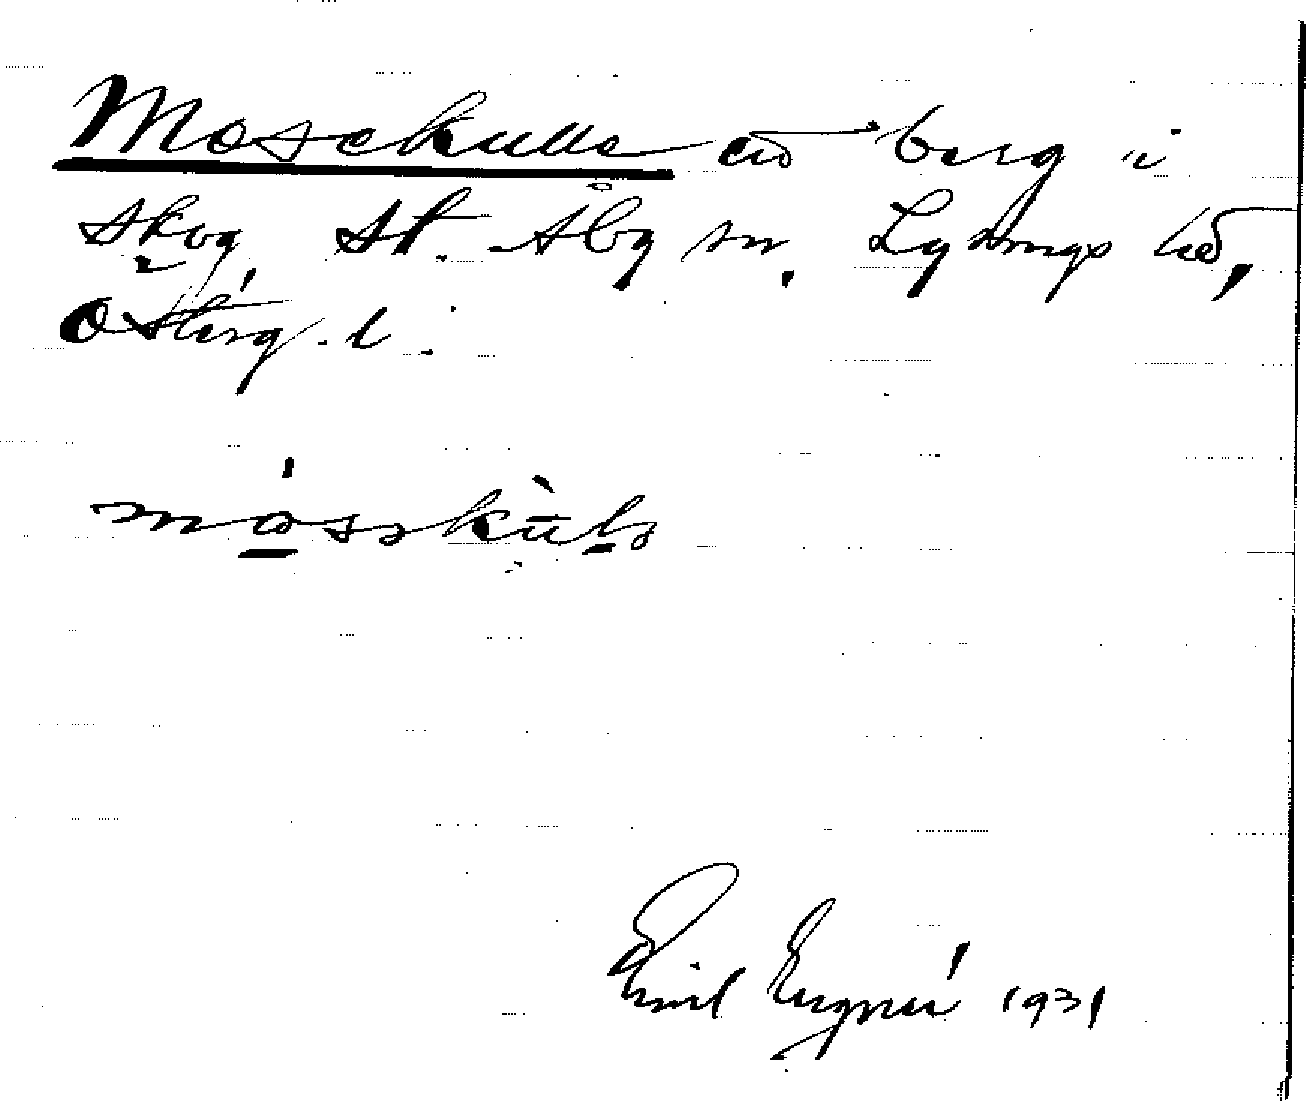 Mosekulle ett berg i
skog, St. Åby sn, Lysings hd,
Österg. l.
Emil Eugné 1931